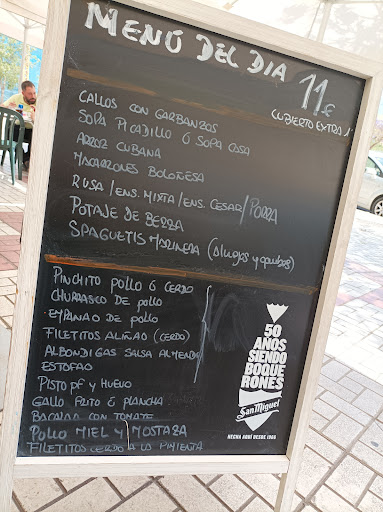 MENÚ DEL DIA 11€
CUBIERTO EXTRO 1
CALLOS CON GARBANZOS
SOPA PICADILLO Ó SOPA COSA
ARROZ CUBANA
MACARRONES BOLOÑESA
RUSA/ENS. MIXTA/ENS. CESAR/PORRA
POTAJE DE BERZA
SPAGUETIS MARINERA (Almejas y gambas)
PINCHITO POLLO Ó CERDO
CHURRASCO DE POLLO
EMPANAO DE POLLO
FILETITOS ALIÑAO (CERDO)
ALBONDIGAS SALSA ALMENDRA
ESTOFAO
PISTO PF Y HUEVO
GALLO FRITO Ó PLANCHA
BACALAO CON TOMATE
POLLO MIEL Y MOSTAZA
FILETITOS CERDO A LA PIMIENTA
50
AÑOS
SIENDO
BOQUE
RONES
San Miguel
HECHA AQUÍ DESDE 1966